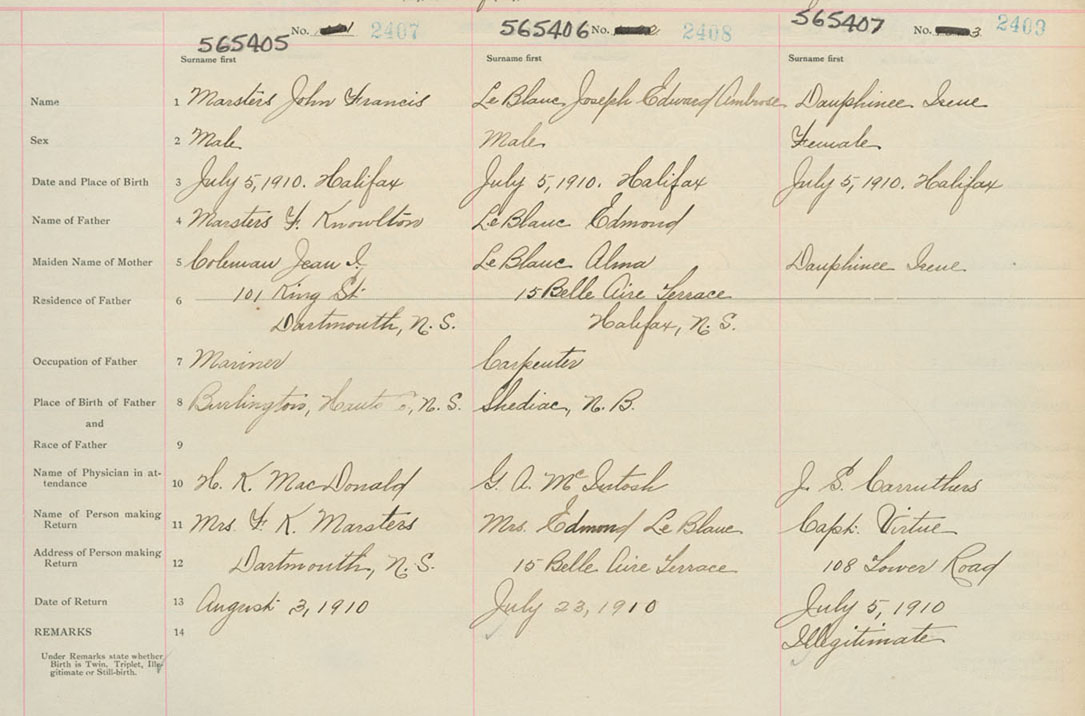 565405 No. 2407 565406 No. 2408 565407 No. 3 2409
Surname first Surname first Surname first
Name 1 Marsters John Francis LeBlanc Joseph Edward Ambrose Dauphinee Irene
Sex 2 Male Male Female
Date and Place of Birth 3 July 5, 1910. Halifax July 5, 1910. Halifax July 5, 1910. Halifax
Name of Father 4 Marsters F. Knowlton LeBlanc Edmond
Maiden Name of Mother 5 Coleman Jean I. LeBlanc Alma Dauphinee Irene
Residence of Father 6 101 King St. 15 Belle Aire Terrace
Dartmouth, N.S. Halifax, N.S.
Occupation of Father 7 Mariner Carpenter
Place of Birth of Father 8 Burlington, Hants, N.S. Shediac, N.B.
and
Race of Father 9
Name of Physician in at-
tendance 10 H. K. MacDonald G. A. McIntosh J. S. Carruthers
Name of Person making
Return 11 Mrs. F. K. Marsters Mrs. Edmond LeBlanc Capt. Virtue
Address of Person making
Return 12 Dartmouth, N.S. 15 Belle Aire Terrace 108 Tower Road
Date of Return 13 August 3, 1910 July 23, 1910 July 5, 1910
REMARKS 14 Illegitimate
Under Remarks state whether
Birth is Twin, Triplet, Ille-
gitimate or Still-birth.